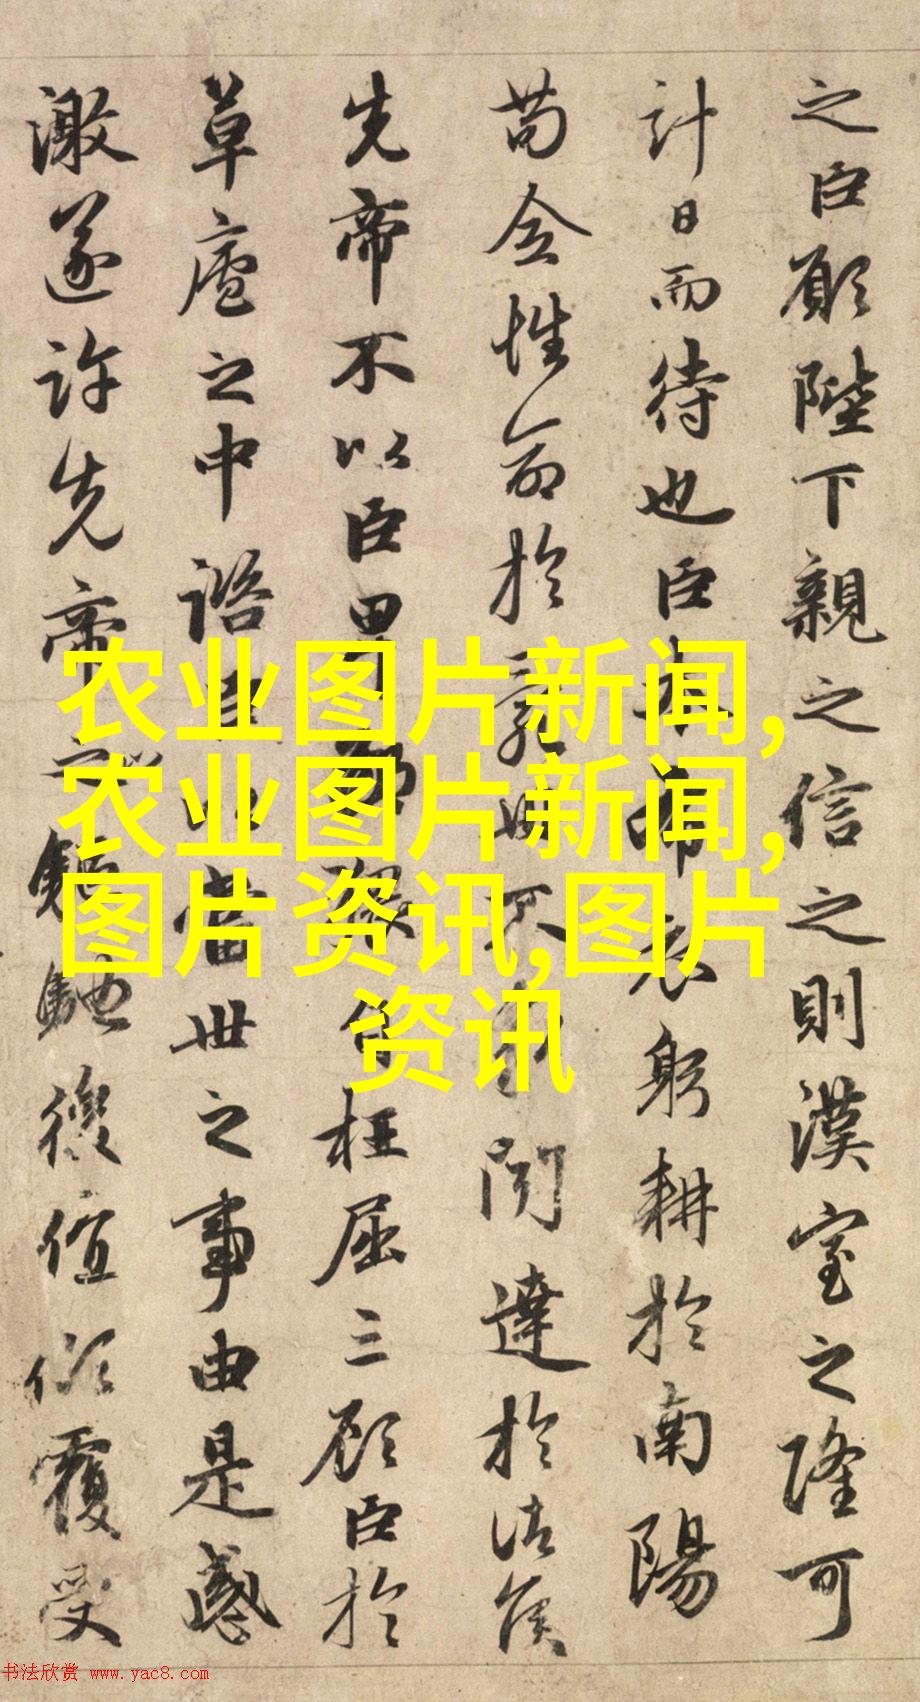 之臣願陛下親之信之則漢室之隆可
計日而待也臣本布衣躬耕於南陽
苟全性命於亂世不求聞達於諸侯
先帝不以臣卑鄙猥自枉屈三顧臣於
草廬之中諮臣以當世之事由是感
激遂許先帝以驅馳後值傾覆受
农业图片新闻,
农业图片新闻,
图片资讯,图片
资讯
书法欣赏 www.yac8.com